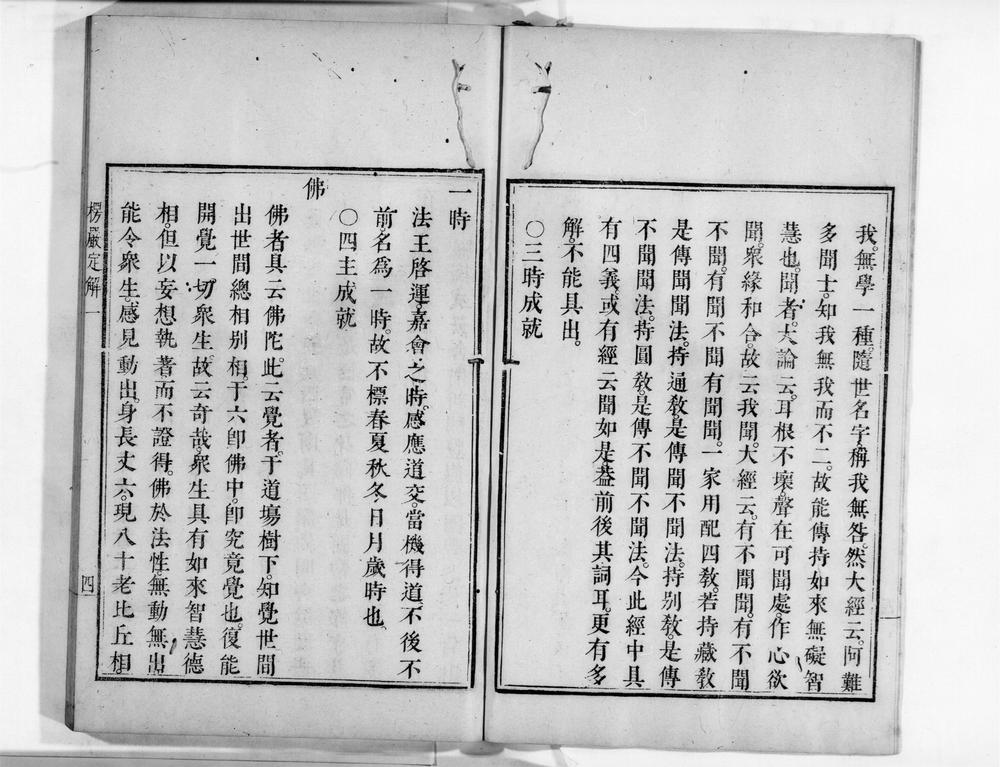 我。無學一種。隨世名字。稱我無咎。然大經云。阿難
多聞士。知我無我而不二。故能傳持如來無礙智
慧也。聞者。大論云。耳根不壞。聲在可聞處。作心欲
聞。衆緣和合。故云我聞。大經云。有不聞聞。有不聞
不聞。有聞不聞有聞聞。一家用配四敎。若持藏敎
是傳聞聞法。持通敎。是傳聞不聞法。持別敎。是傳
不聞聞法。持圓敎。是傳不聞不聞法。今此經中具
有四義。或有經云聞如是。葢前後其詞耳。更有多
解。不能具出。
○三時成就
一時
法王啓運。嘉會之時。感應道交。當機得道。不後不
前。名爲一時。故不標春夏秋冬日月歲時也。
○四主成就
佛
佛者具云佛陀。此云覺者。于道塲樹下。知覺世間
出世間總相別相。于六卽佛中。卽究竟覺也。復能
開覺一切衆生。故云奇哉。衆生具有如來智慧德
相。但以妄想執著而不證得。佛於法性無動無出
能令衆生。感見動出。身長丈六。現八十老比丘相。
楞嚴定解一
四